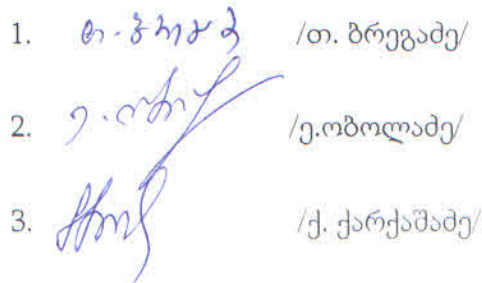 1. /თ. ბრეგაძე/
2. /ე.ობოლაძე/
3. /ქ. ქარქაშაძე/